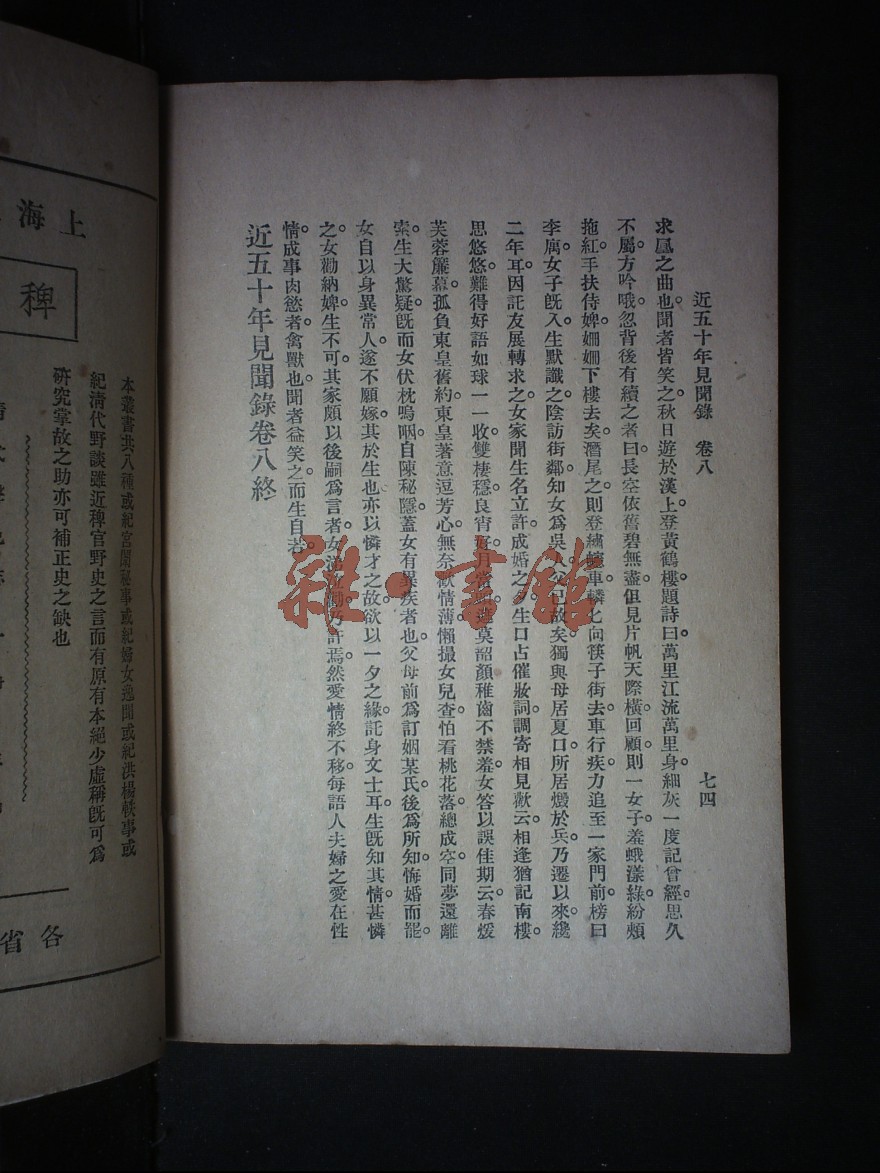 近五十年見聞錄　卷八　七四
求凰之曲也。聞者皆笑之。秋日遊於漢上。登黃鶴樓。題詩曰。萬里江流萬里身。細灰一度記曾經。思久
不屬。方吟哦。忽背後有續之者曰。長空依舊碧無盡。但見片帆天際橫。回顧則一女子。羞蛾漾綠。紛頰
拖紅。手扶侍婢。姍姍下樓去矣。潛尾之。則登繡幰車。轔轔向筷子街去。車行疾。力追至一家門前。榜曰
李寓。女子既入。生默識之。陰訪街鄰。知女爲吳人。父已故矣。獨與母居夏口。所居燬於兵。乃遷以來。纔
二年耳。因託友展轉求之。女家聞生名。立許。成婚之夕。生口占催妝詞。調寄相見歡云。相逢猶記南樓。
思悠悠。難得好語如球一一收。雙棲穩。良宵好。月當頭。莫韶顏稚齒不禁羞。女答以誤佳期云。春煖
芙蓉簾幕。孤負東皇舊約。東皇著意逗芳心。無奈歡情薄。懶撮女兒查。怕看桃花落。總成空。同夢還離
索。生大驚疑。既而女伏枕嗚咽。自陳秘隱。蓋女有異疾者也。父母前爲訂姻某氏。後爲所知。悔婚而罷。
女自以身異常人。遂不願嫁。其於生也。亦以憐才之故。欲以一夕之緣。託身文士耳。生既知其情。甚憐
之。女勸納婢。生不可。其家頗以後嗣爲言者。女涕泣勸。乃許焉。然愛情終不移。每語人夫婦之愛在性
情。成事肉慾者。禽獸也。聞者益笑之。而生自若。
近五十年見聞錄卷八終
雜·書館
上海
稗
本叢書共八種或紀宮闈秘事或紀婦女逸聞或紀洪楊軼事或
紀清代野談雖近稗官野史之言而有原有本絕少虛稱既可爲
研究掌故之助亦可補正史之缺也
各省